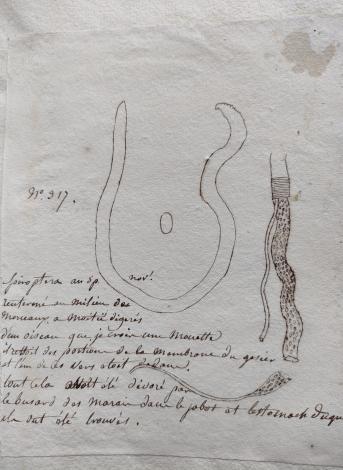 N°. 317.
Spiroptera an Sp. nov!
renfermé au milieu des
morceaux a moitié digérés
d'un oiseau que je crois une Mouette
il restoit des portions de la membrane du gesier
et l'un de ces vers etoit
tout cela avoit été dévoré par
le busard des marais dans le jabot et l'estomach duquel
ils ont été trouvés.